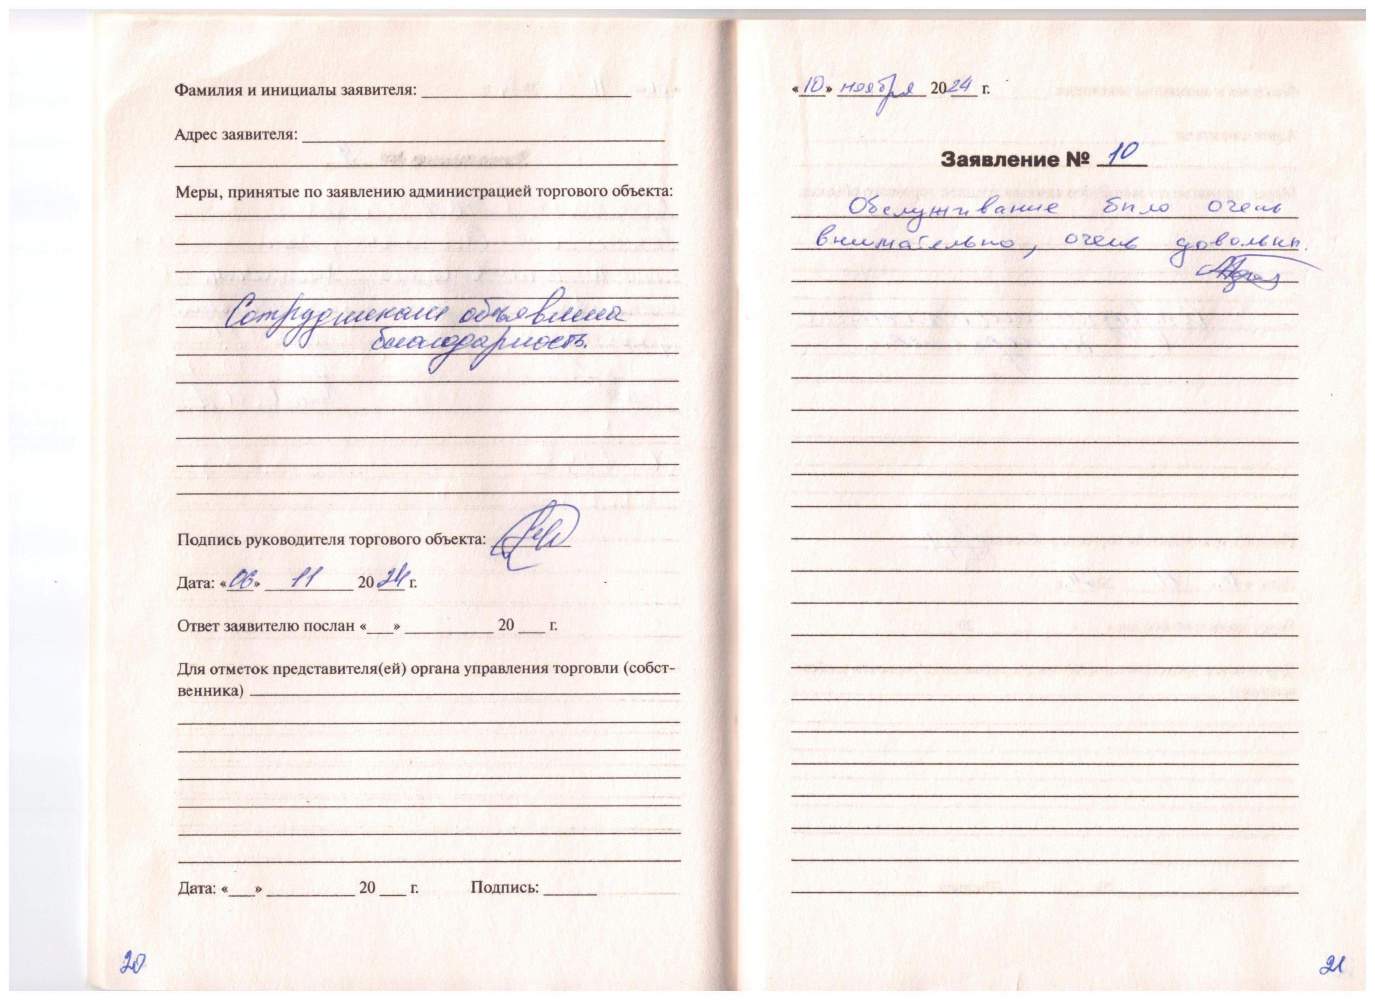 Фамилия и инициалы заявителя:
Адрес заявителя:
Меры, принятые по заявлению администрацией торгового объекта:
Сотрудникам объявлена
благодарность.
Подпись руководителя торгового объекта:
Дата: «06» 11 2024 г.
Ответ заявителю послан «___» __________ 20 ___ г.
Для отметок представителя(ей) органа управления торговли (собст-
венника)
Дата: «___» __________ 20 ___ г. Подпись: ______
20
«10» ноября 2024 г.
Заявление № 10
Обслуживание было очень
внимательно, очень довольны.
21